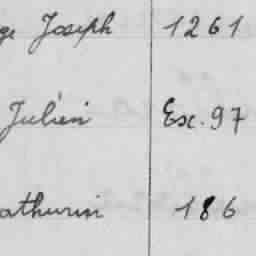 ge Joseph 1261
Julien Ex. 97
athurin 186